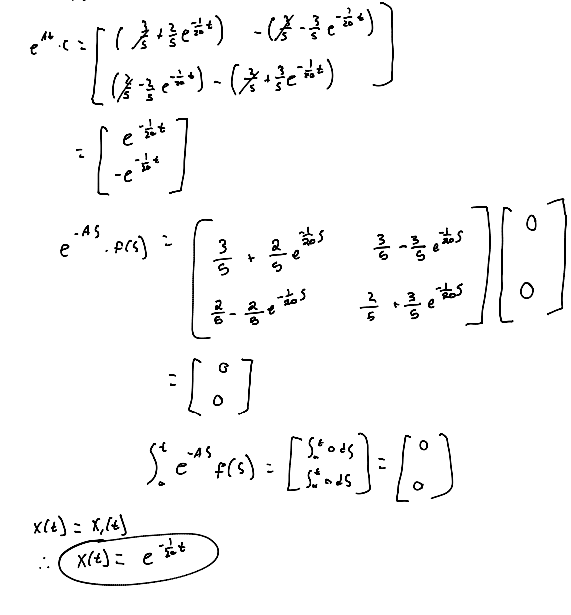 e^{At}·c = [ (3/5 + 2/5 e^{-1/20 t}) - (3/5 - 3/5 e^{-1/20 t})
(2/5 - 2/5 e^{-1/20 t}) - (2/5 + 3/5 e^{-1/20 t}) ]
= [ e^{-1/20 t}
-e^{-1/20 t} ]
e^{-AS}·f(s) = [ 3/5 + 2/5 e^{-1/20 s}   3/5 - 3/5 e^{-1/20 s} ] [ 0
2/5 - 2/5 e^{-1/20 s}   2/5 + 3/5 e^{-1/20 s} ] 0 ]
= [ 0
0 ]
∫₀ᵗ e^{-AS} f(s) = [ ∫₀ᵗ 0 ds ] = [ 0
∫₀ᵗ 0 ds ] 0 ]
x(t) = x₁(t)
∴ x(t) = e^{-1/20 t}